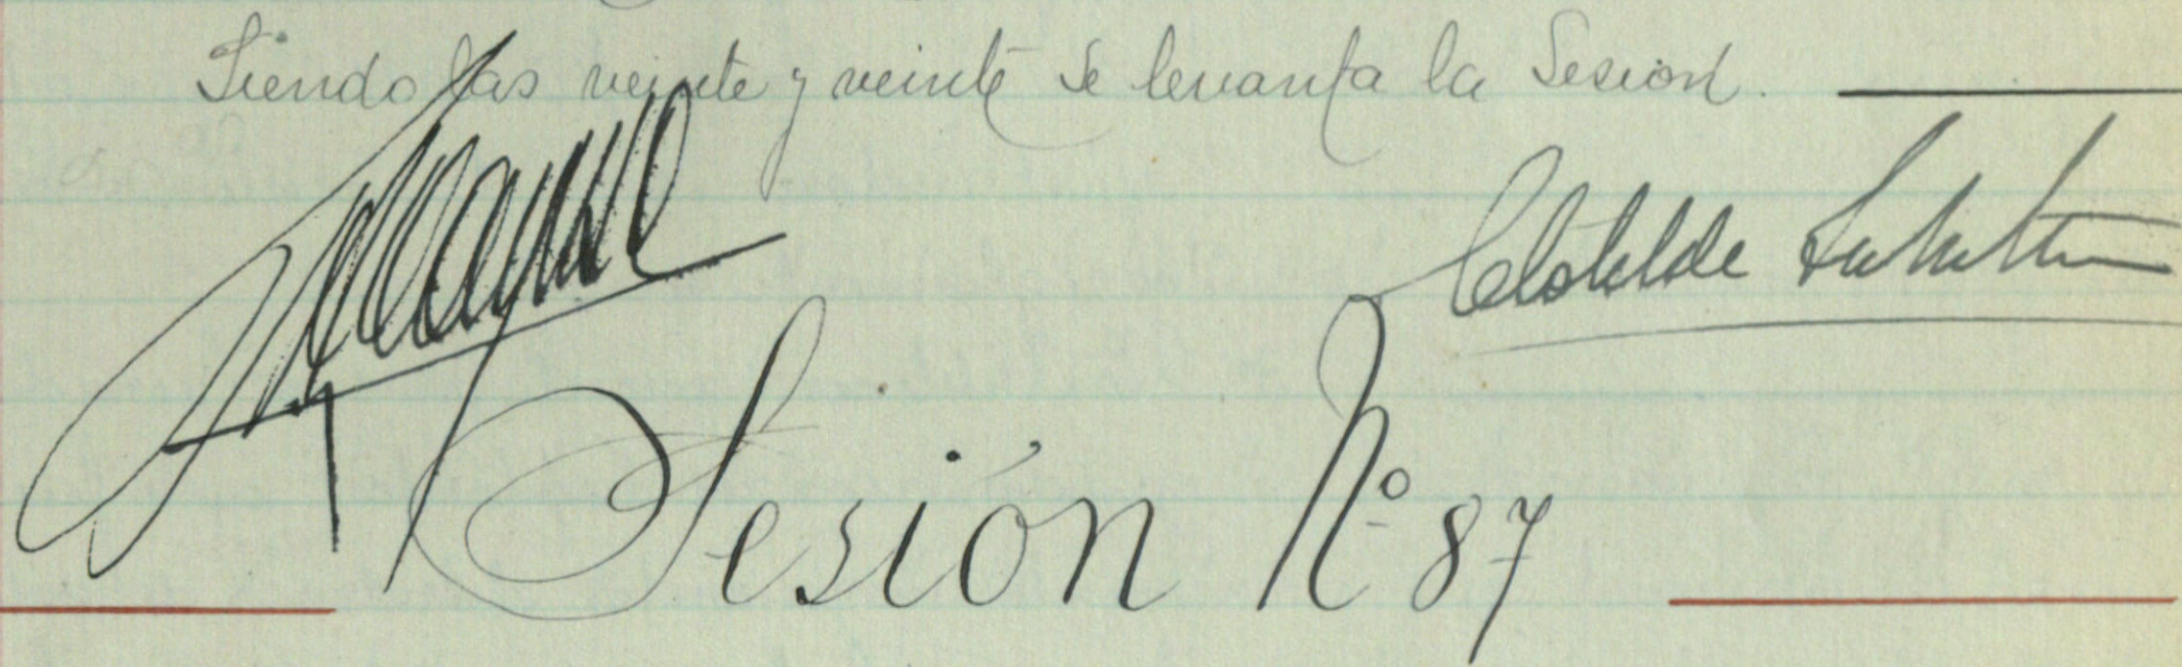 Siendo las veinte y veinte se levanta la Sesión.
Clotilde
Sesión Nº 87